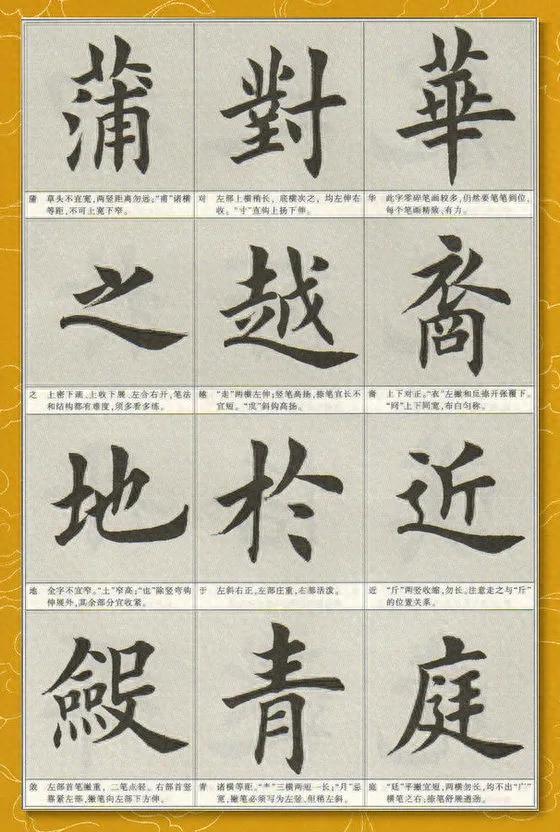 蒲 對 華
蒲 草头不宜宽，两竖距离勿远；“甫”诸横
等距，不可上宽下窄。
对 左部上横稍长，底横次之，均左伸右
收。“寸”直钩上扬下伸。
华 此字零碎笔画较多，仍然要笔笔到位，
每个笔画精致、有力。
之 越 裔
之 上密下疏、上收下展、左合右开，笔法
和结构都有难度，须多看多练。
越 “走”两横左伸；竖笔高扬，捺笔宜长不
宜短。“戉”斜钩高扬。
裔 上下对正。“衣”左撇和反捺开张覆下。
“冏”上下同宽，布白匀称。
地 於 近
地 全字不宜窄。“土”窄高；“也”除竖弯钩
伸展外，其余部分宜收紧。
于 左斜右正，左部庄重，右部活泼。
近 “斤”两竖收缩，勿长。注意走之与“斤”
的位置关系。
青 庭
左部首笔撇重，二笔点轻。右部首竖
靠紧左部，撇笔向左部下方伸。
青 诸横等距。“龶”三横两短一长；“月”忌
宽，撇笔必须写为左竖，但稍左斜。
庭 “廷”平撇宜短，两横勿长，均不出“广”
横笔之右；捺笔舒展遒劲。